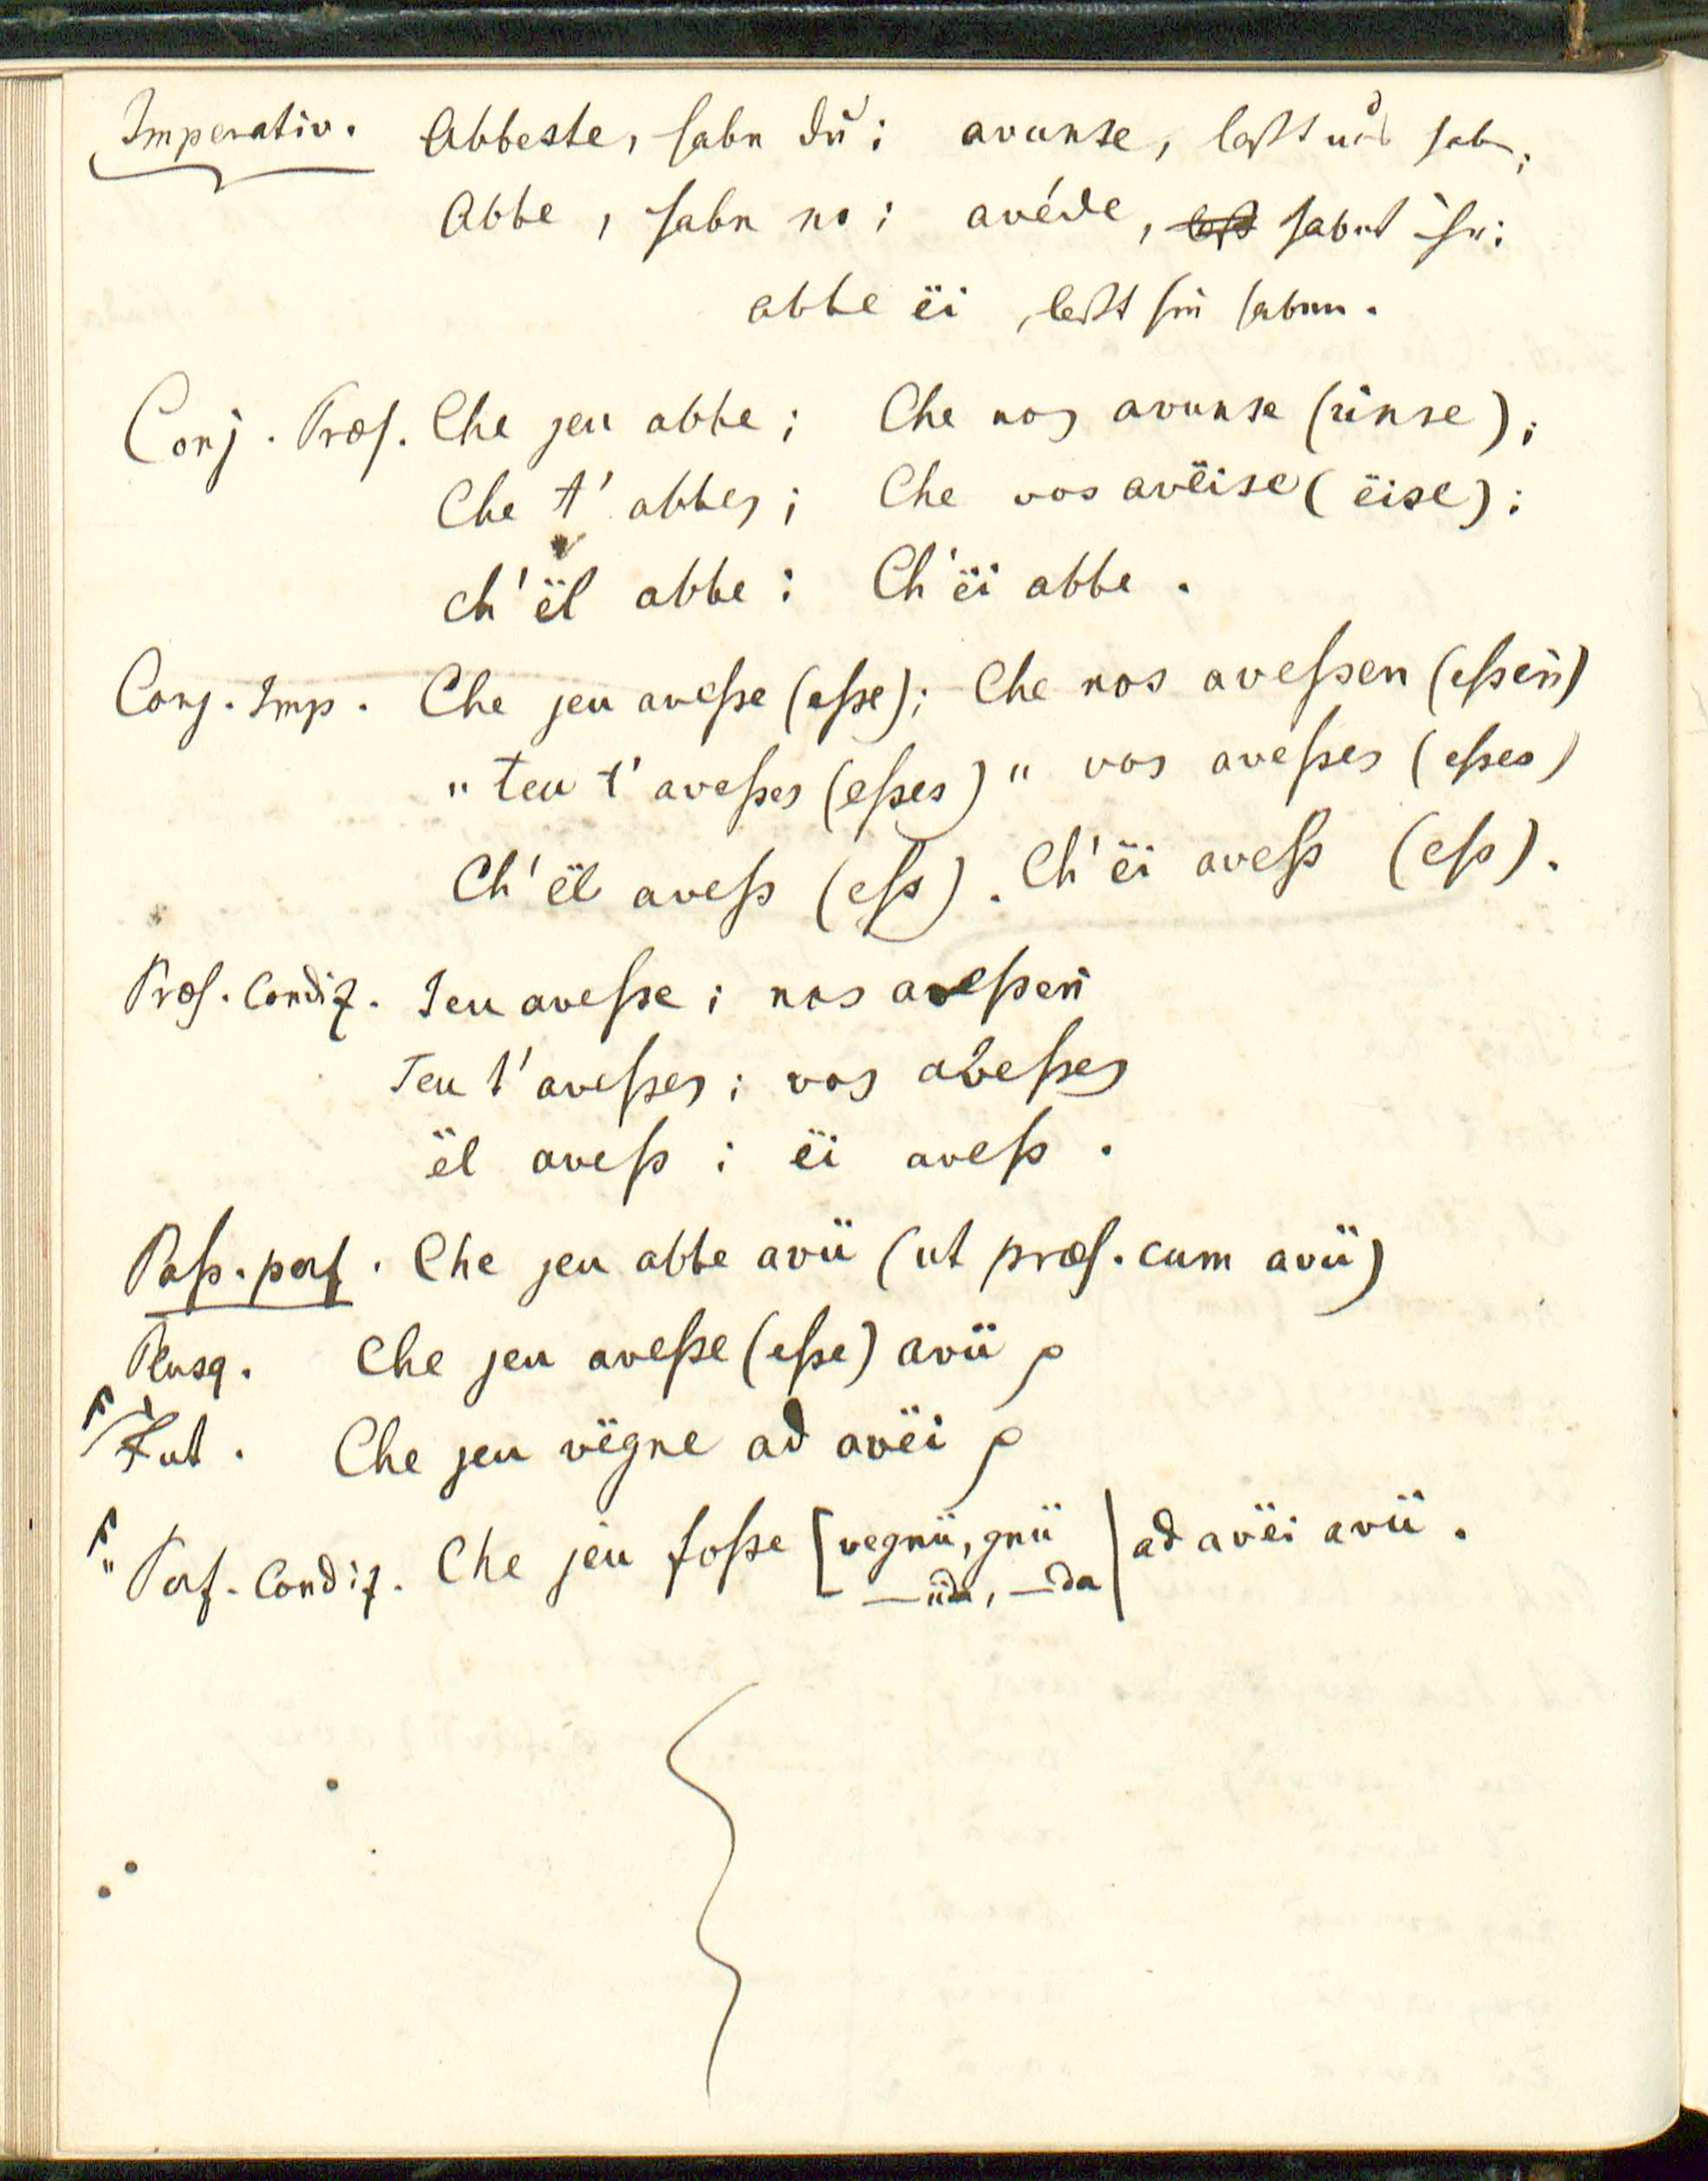 Imperativ. Abbeste, habe du; avunse, laßt uns haben;
Abbe, habe er; avéde, habet ihr;
abbe ëi, laßt sie haben.
Conj. Præs. Che jeu abbe; Che nos avunse (unse);
Che t' abbes; Che vos avëise (ëise);
ch' ël abbe; Ch' ëi abbe.
Conj. Imp. Che jeu aveſse (eſse); Che nos aveſsen (eſsen)
" teu t' aveſses (eſses) " vos aveſses (eſses)
Ch' ël aveſs (eſs). Ch' ëi aveſs (eſs).
Præs. Condiz. Jeu aveſse; nos aveſsen
Teu t' aveſses; vos aveſses
ël aveſs; ëi aveſs.
Paſs. perf. Che jeu abbe avü (ut præs. cum avü)
Plusq. Che jeu aveſse (eſse) avü
Fut. Che jeu vëgne ad avëi
" Perf. Condiz. Che jeu foſse [vegnü, gnü | ad avëi avü.
—üda, —da